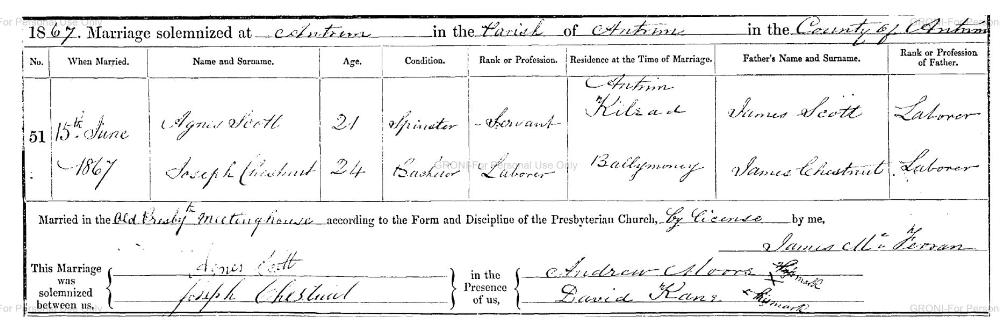 1867. Marriage solemnized at Antrim in the Parish of Antrim in the County of Antrim
No. When Married. Name and Surname. Age. Condition. Rank or Profession. Residence at the Time of Marriage. Father's Name and Surname. Rank or Profession of Father.
51 15th June 1867 Agnes Scott 21 Spinster Servant Antrim Kilead James Scott Laborer
Joseph Chesnut 24 Bachelor Laborer Ballymoney James Chestnut Laborer
Married in the Old Presbyth Meetinghouse according to the Form and Discipline of the Presbyterian Church, by License by me,
James Mc Ferran
This Marriage was solemnized between us, Agnes Scott Joseph Chestnut in the Presence of us, Andrew Moore David Kane X his mark
GRONI-For Personal Use Only